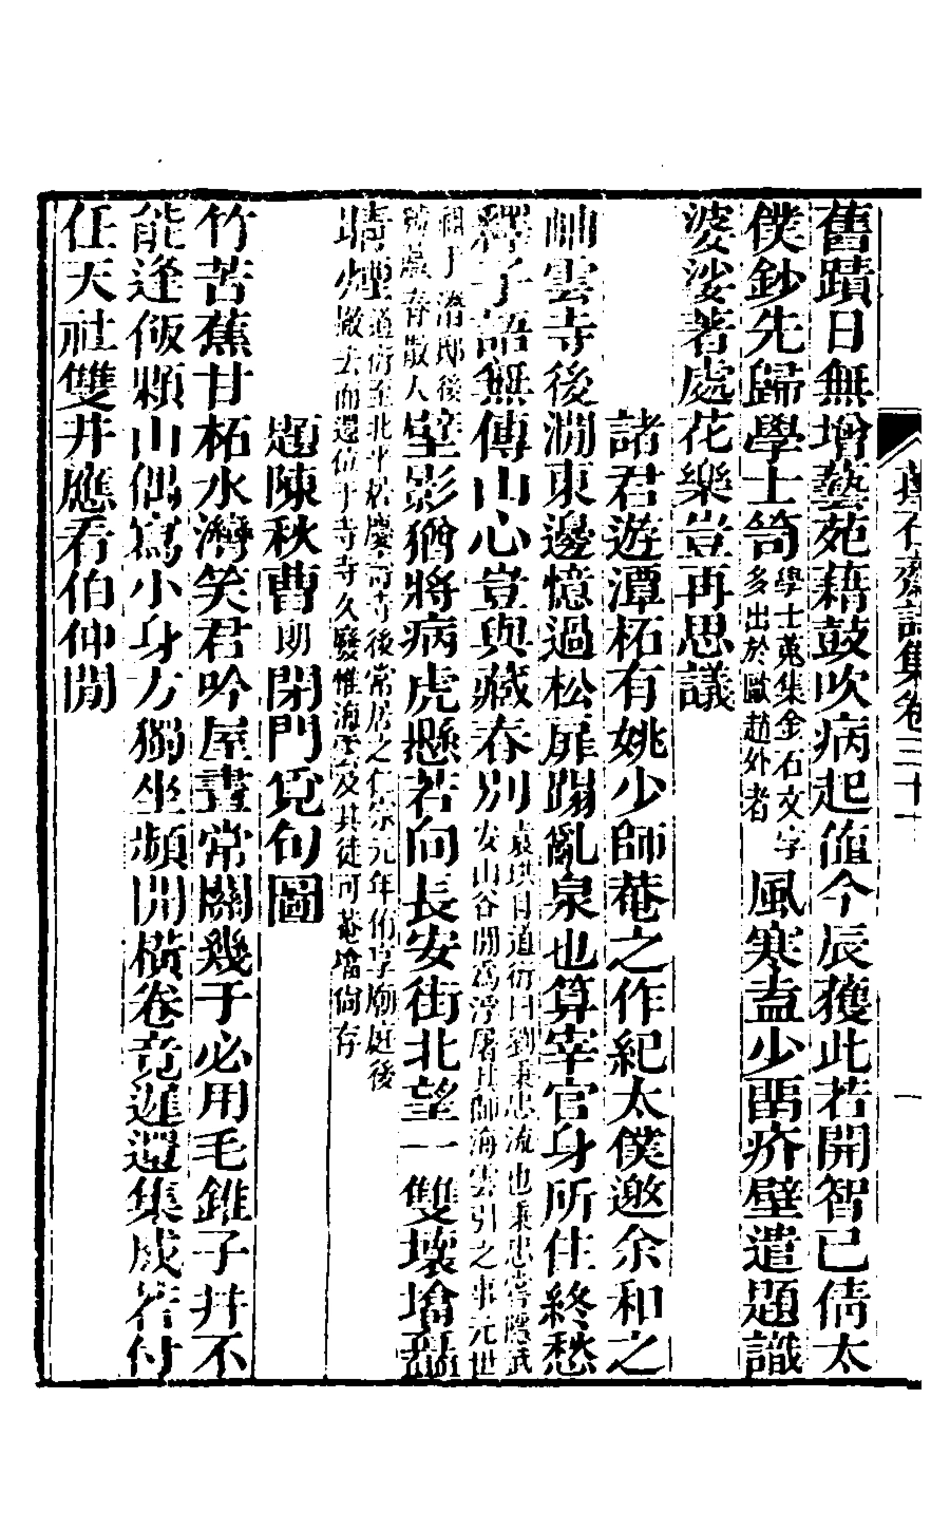 蘀石齋詩集卷三十
一
舊蹟日無增藝苑藉鼓吹病起值今辰獲此若開智已倩太
僕鈔先歸學士笥學士蒐集金石文字多出於歐趙外者風寒盍少畱疥壁遣題識
婆娑著處花樂豈再思議
諸君遊潭柘有姚少師菴之作紀太僕邀余和之
岫雲寺後澗東邊憶過松扉蹋亂泉也算宰官身所住終愁
釋子語無傳山心豈與藏春別袁珙目道衍曰劉秉忠流也秉忠嘗隱武安山谷閒爲浮屠其師海雲引之事元世
祖于潛邸後號藏春散人壁影猶將病虎懸若向長安街北望一雙壞墖磊
晴煙道衍至北平居慶壽寺後常居之仁宗元年侑享廟庭後撤去而還位于寺寺久廢惟海雲及其徒可菴墖尙存
題陳秋曹朗閉門覓句圖
竹苦蕉甘柘水灣笑君吟屋晝常關幾于必用毛錐子幷不
能逢飯顆山偶寫小身方獨坐頻開橫卷竟遲還集成若付
任天社雙井應看伯仲閒